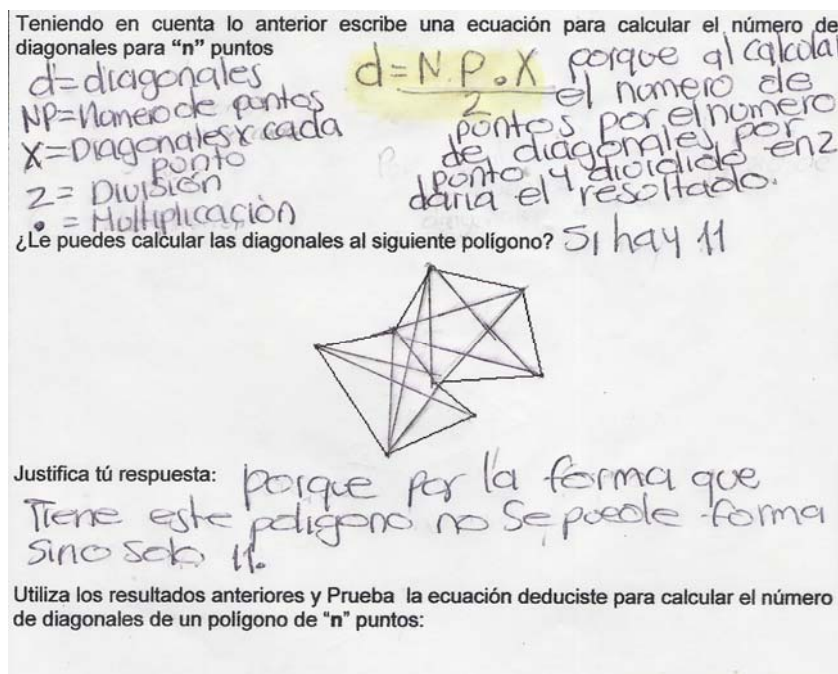 Teniendo en cuenta lo anterior escribe una ecuación para calcular el número de
diagonales para “n” puntos
d=diagonales
NP=Numero de puntos
X=Diagonales x cada
punto
2= División
• = Multiplicación
d=N.P.•X
2
porque al calcular
el numero de
puntos por el numero
de diagonales por
punto y dividido en 2
daria el resoltado.
¿Le puedes calcular las diagonales al siguiente polígono? SI hay 11
Justifica tú respuesta: porque por la forma que
Tiene este poligono no Se puede forma
Sino Solo 11.
Utiliza los resultados anteriores y Prueba la ecuación deduciste para calcular el número
de diagonales de un polígono de “n” puntos: